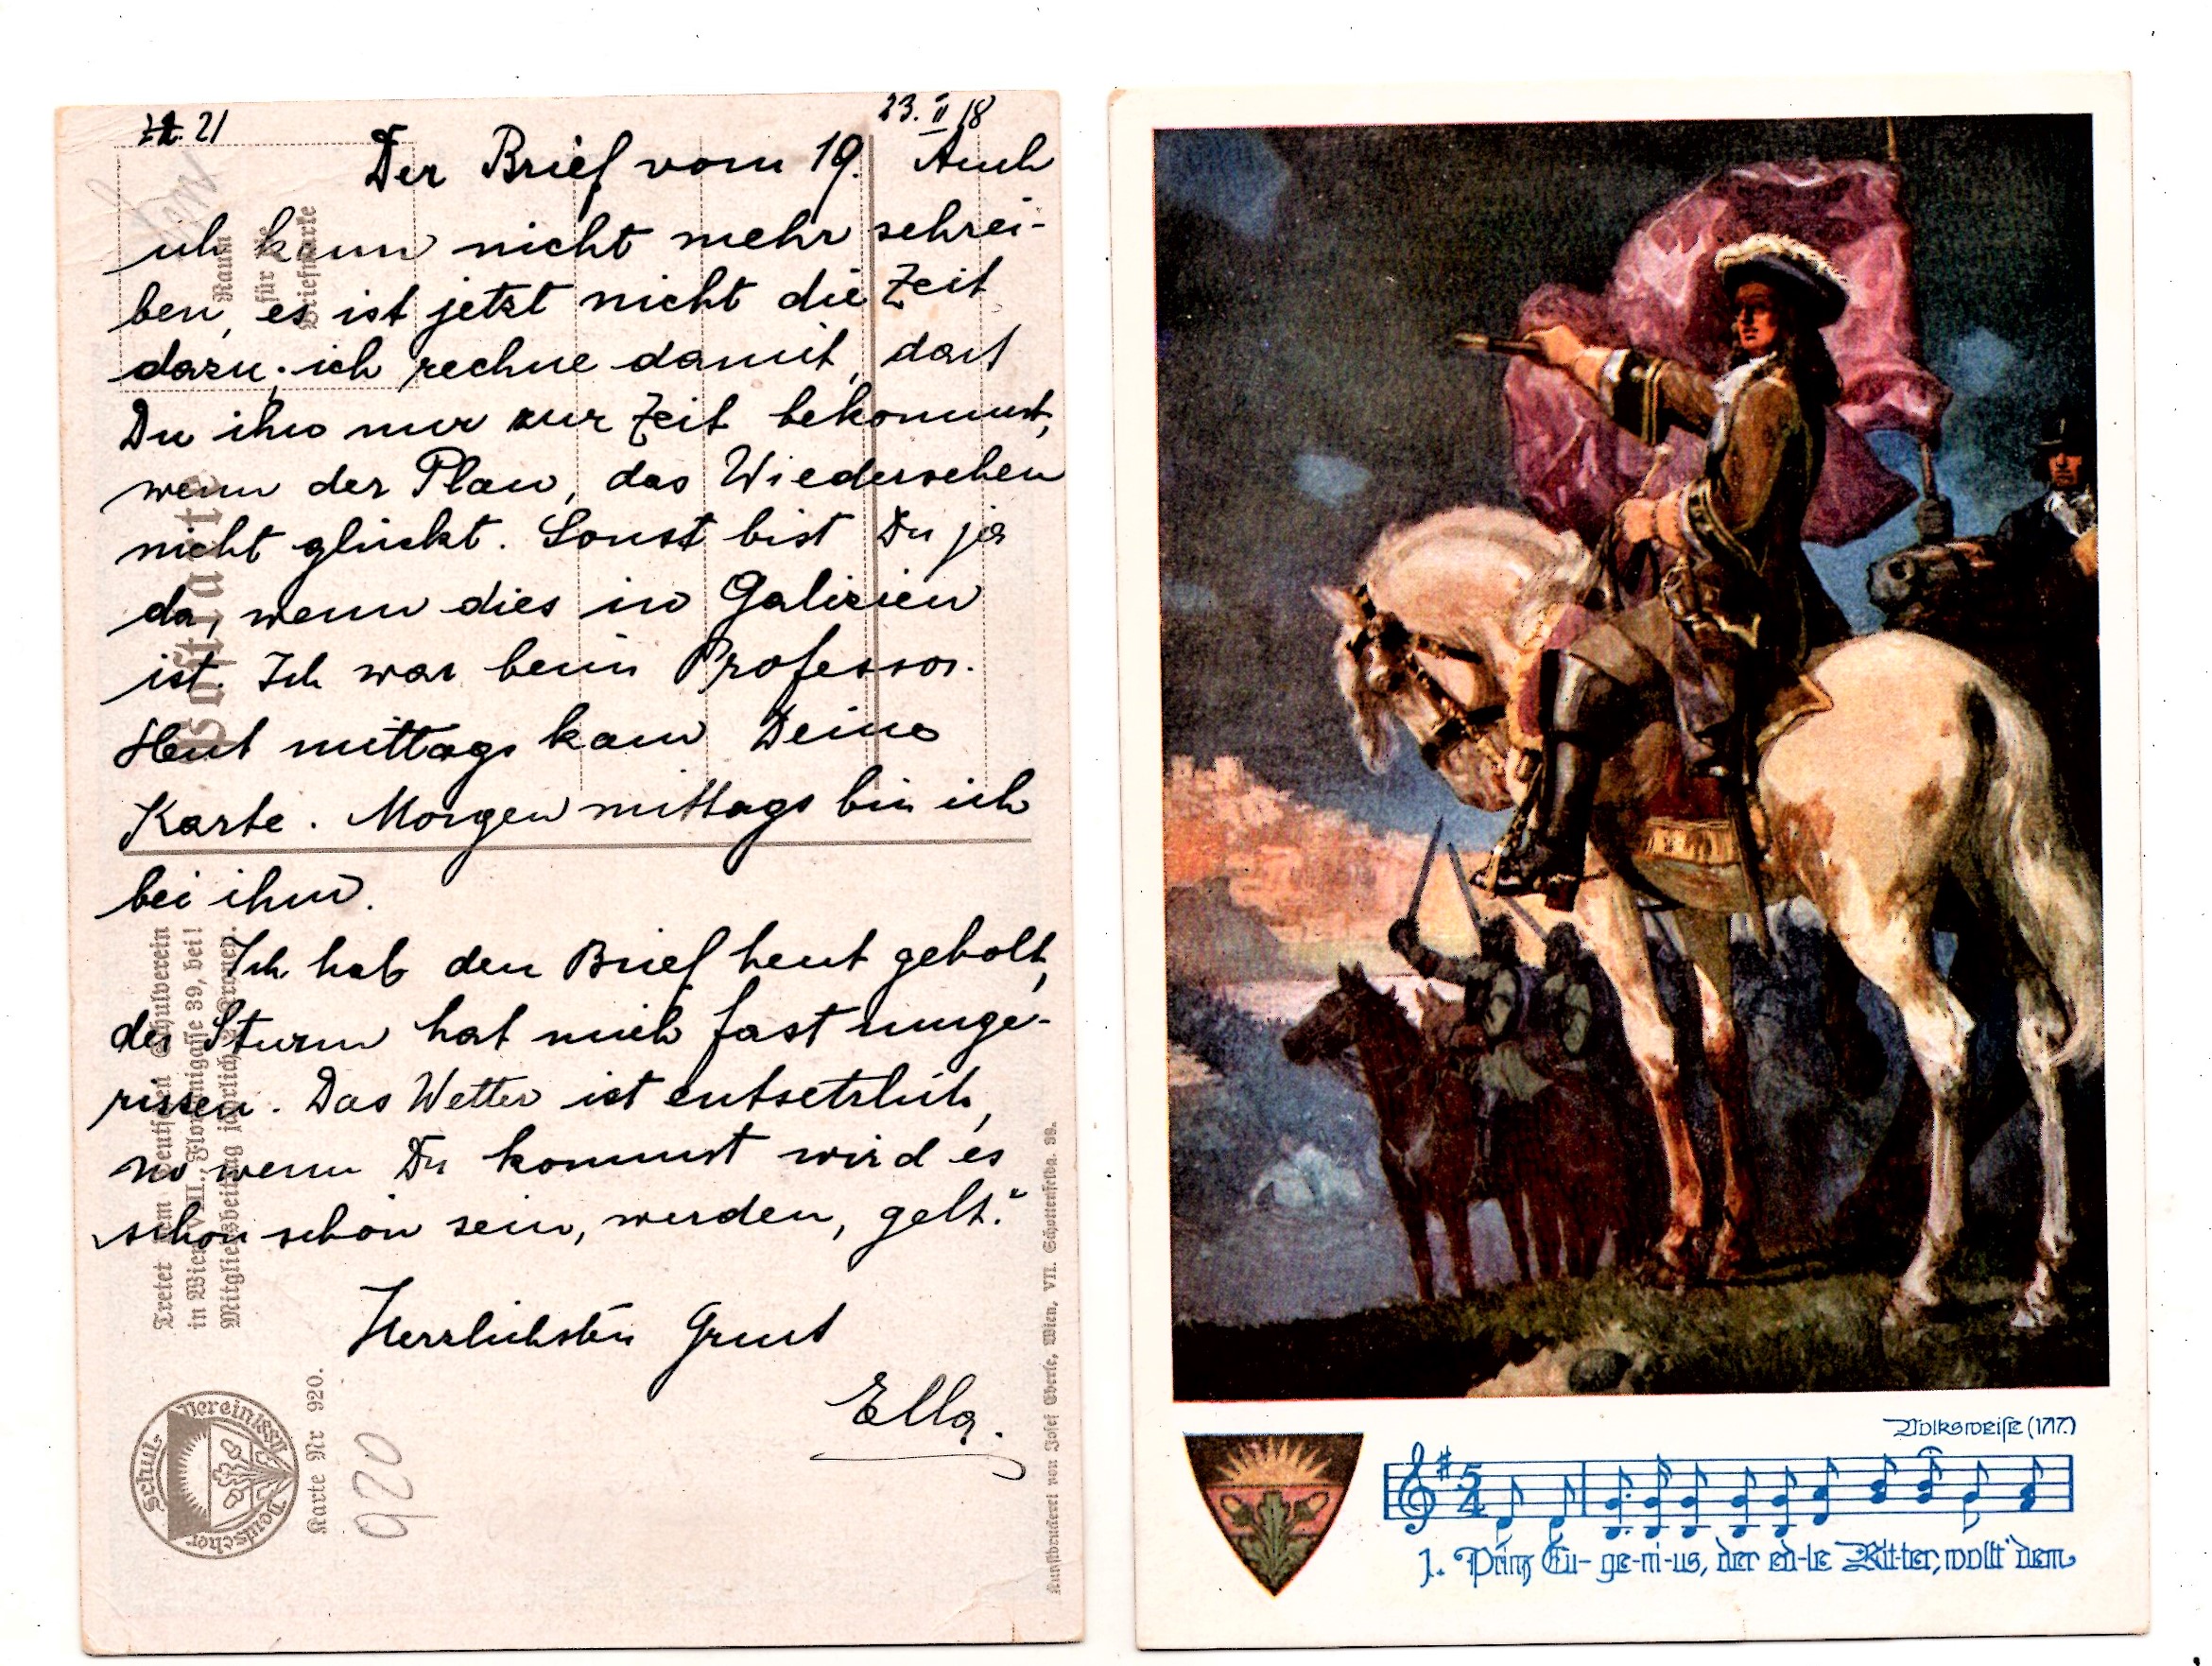 21
23. II 18
Der Brief vom 19. Auch
ich kann nicht mehr schrei-
ben, es ist jetzt nicht die Zeit
dazu; ich rechne damit, dast
Du ihn nur zur Zeit bekommst,
wenn der Plan, das Wiedersehen
nicht glückt. Sonst bist Du ja
da, wenn dies in Galizien
ist. Ich war beim Professor.
Heut mittags kam Deine
Karte. Morgen mittags bin ich
bei ihm.
Ich hab den Brief heut geholt,
der Sturm hat mich fast umge-
rissen. Das Wetter ist entsetzlich,
no wenn Du kommst wird es
schon schön sein, werden, gelt."
Herzlichsten Grust
Ella.
Raum
für die
Briefmarke
Postkarte
Tretet dem Deutschen Schulverein
in Wien, VIII., Florianigasse 39, bei!
Mitgliedsbeitrag jährlich 2 Kronen.
Deutscher Schul-Vereinigg
Karte Nr 920.
920
Kunstdruckerei von Josef Eberle, Wien, VII. Schottenfeldg. 39.
Volksweise (1717.)
1. Prinz Eu-ge-ni-us, der ed-le Rit-ter, wollt' dem